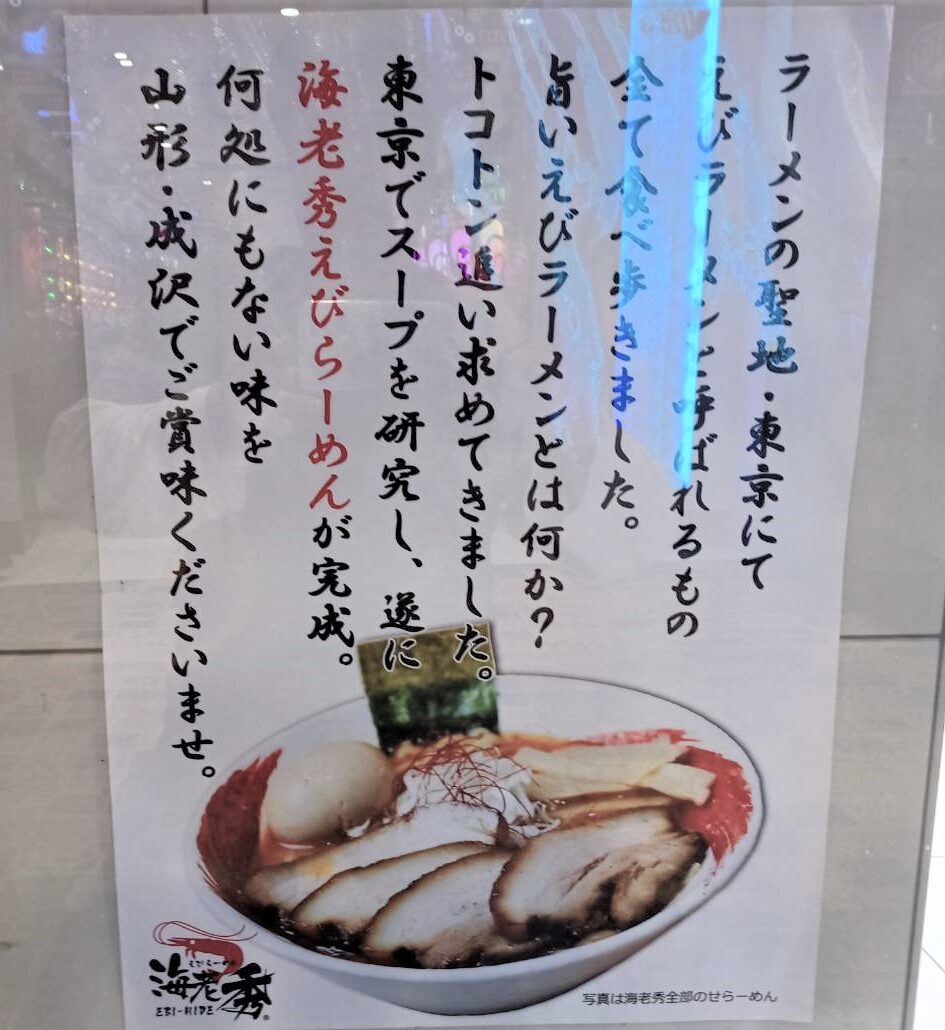 ラーメンの聖地・東京にて
えびラーメンと呼ばれるもの
全て食べ歩きました。
旨いえびラーメンとは何か?
トコトン追い求めてきました。
東京でスープを研究し、遂に
海老秀えびらーめんが完成。
何処にもない味を
山形・成沢でご賞味くださいませ。
えびらーめん
海老秀
EBI-HIDE
写真は海老秀全部のせらーめん